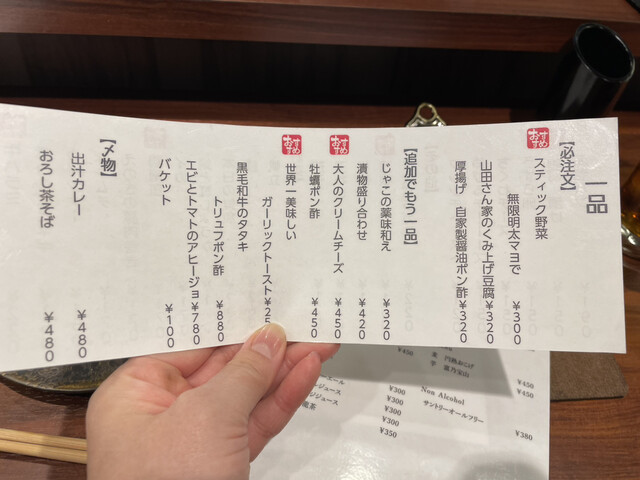 一品
【必注文】
おすすめ
スティック野菜
無限明太マヨで ¥300
山田さん家のくみ上げ豆腐 ¥320
厚揚げ 自家製醤油ポン酢 ¥320
【追加でもう一品】
じゃこの薬味和え ¥320
漬物盛り合わせ ¥420
おすすめ
大人のクリームチーズ ¥450
牡蠣ポン酢 ¥450
おすすめ
世界一美味しい
ガーリックトースト ¥25
黒毛和牛のタタキ
トリュフポン酢 ¥880
エビとトマトのアヒージョ ¥780
バケット ¥100
【〆物】
出汁カレー ¥480
おろし茶そば ¥480
¥450
¥450
¥450
Non Alcohol
サントリーオールフリー ¥380
¥300
¥300
¥300
¥350